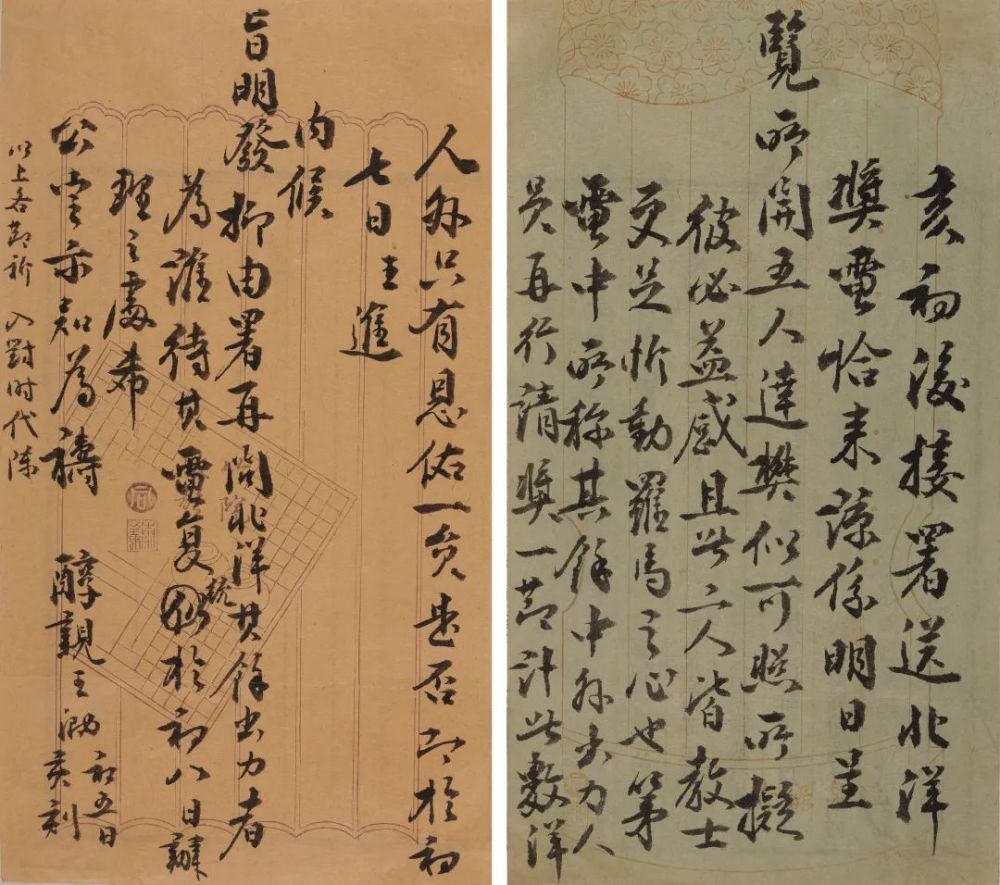 亥初後接署送北洋
獎電恰来諒係明日呈
覽所開五人達樊似可照所擬
彼必益感且此二人皆教士
更足忻動羅馬之心也第
電中所称其餘中外出力人
員再行請獎一節計此數洋
人外只有恩佑一員是否即於初
七日呈進
内候
旨明發抑由署再問北洋其餘出力者
為誰待其電复統於初八日辦
理之處希
公定示知為禱 醇親王泐 初五日
亥刻
以上各節祈 入對时代陳